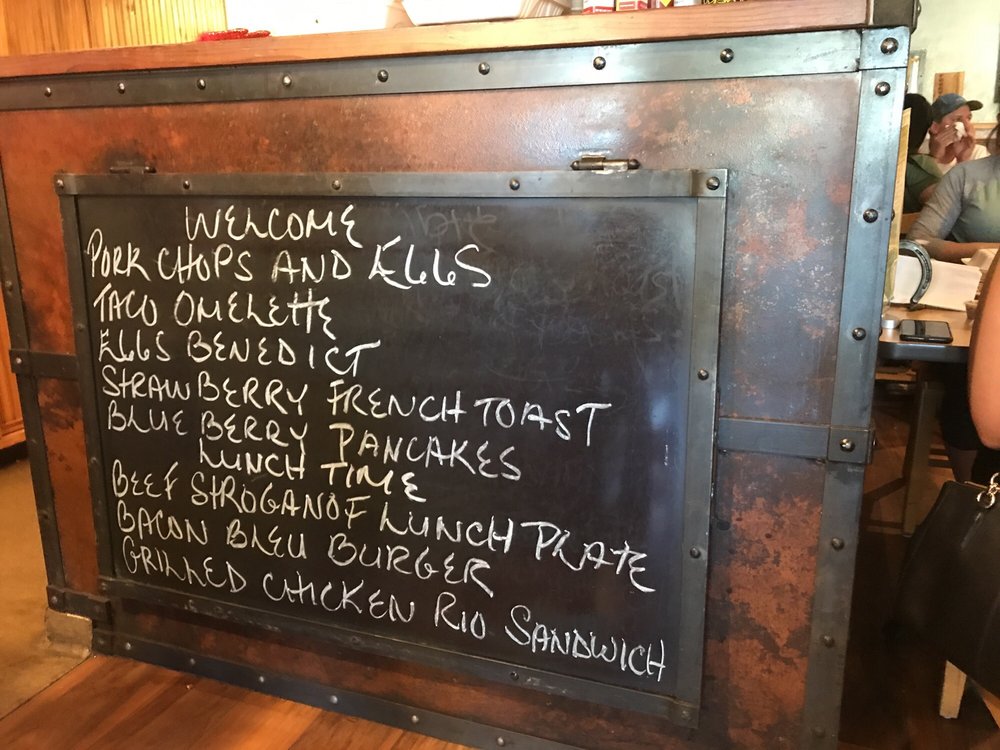 WELCOME
PORK CHOPS AND EGGS
TACO OMELETTE
EGGS BENEDICT
STRAWBERRY FRENCH TOAST
BLUE BERRY PANCAKES
LUNCH TIME
BEEF STROGANOF LUNCH PLATE
BACON BLEU BURGER
GRILLED CHICKEN RIO SANDWICH